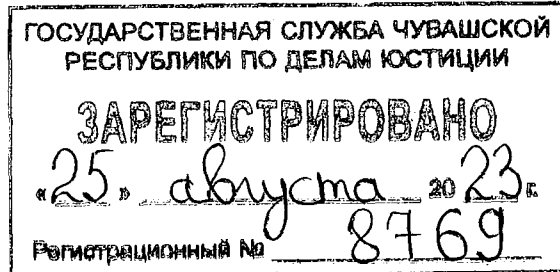 ГОСУДАРСТВЕННАЯ СЛУЖБА ЧУВАШСКОЙ
РЕСПУБЛИКИ ПО ДЕЛАМ ЮСТИЦИИ
ЗАРЕГИСТРИРОВАНО
«25» августа 2023г.
Регистрационный № 8769